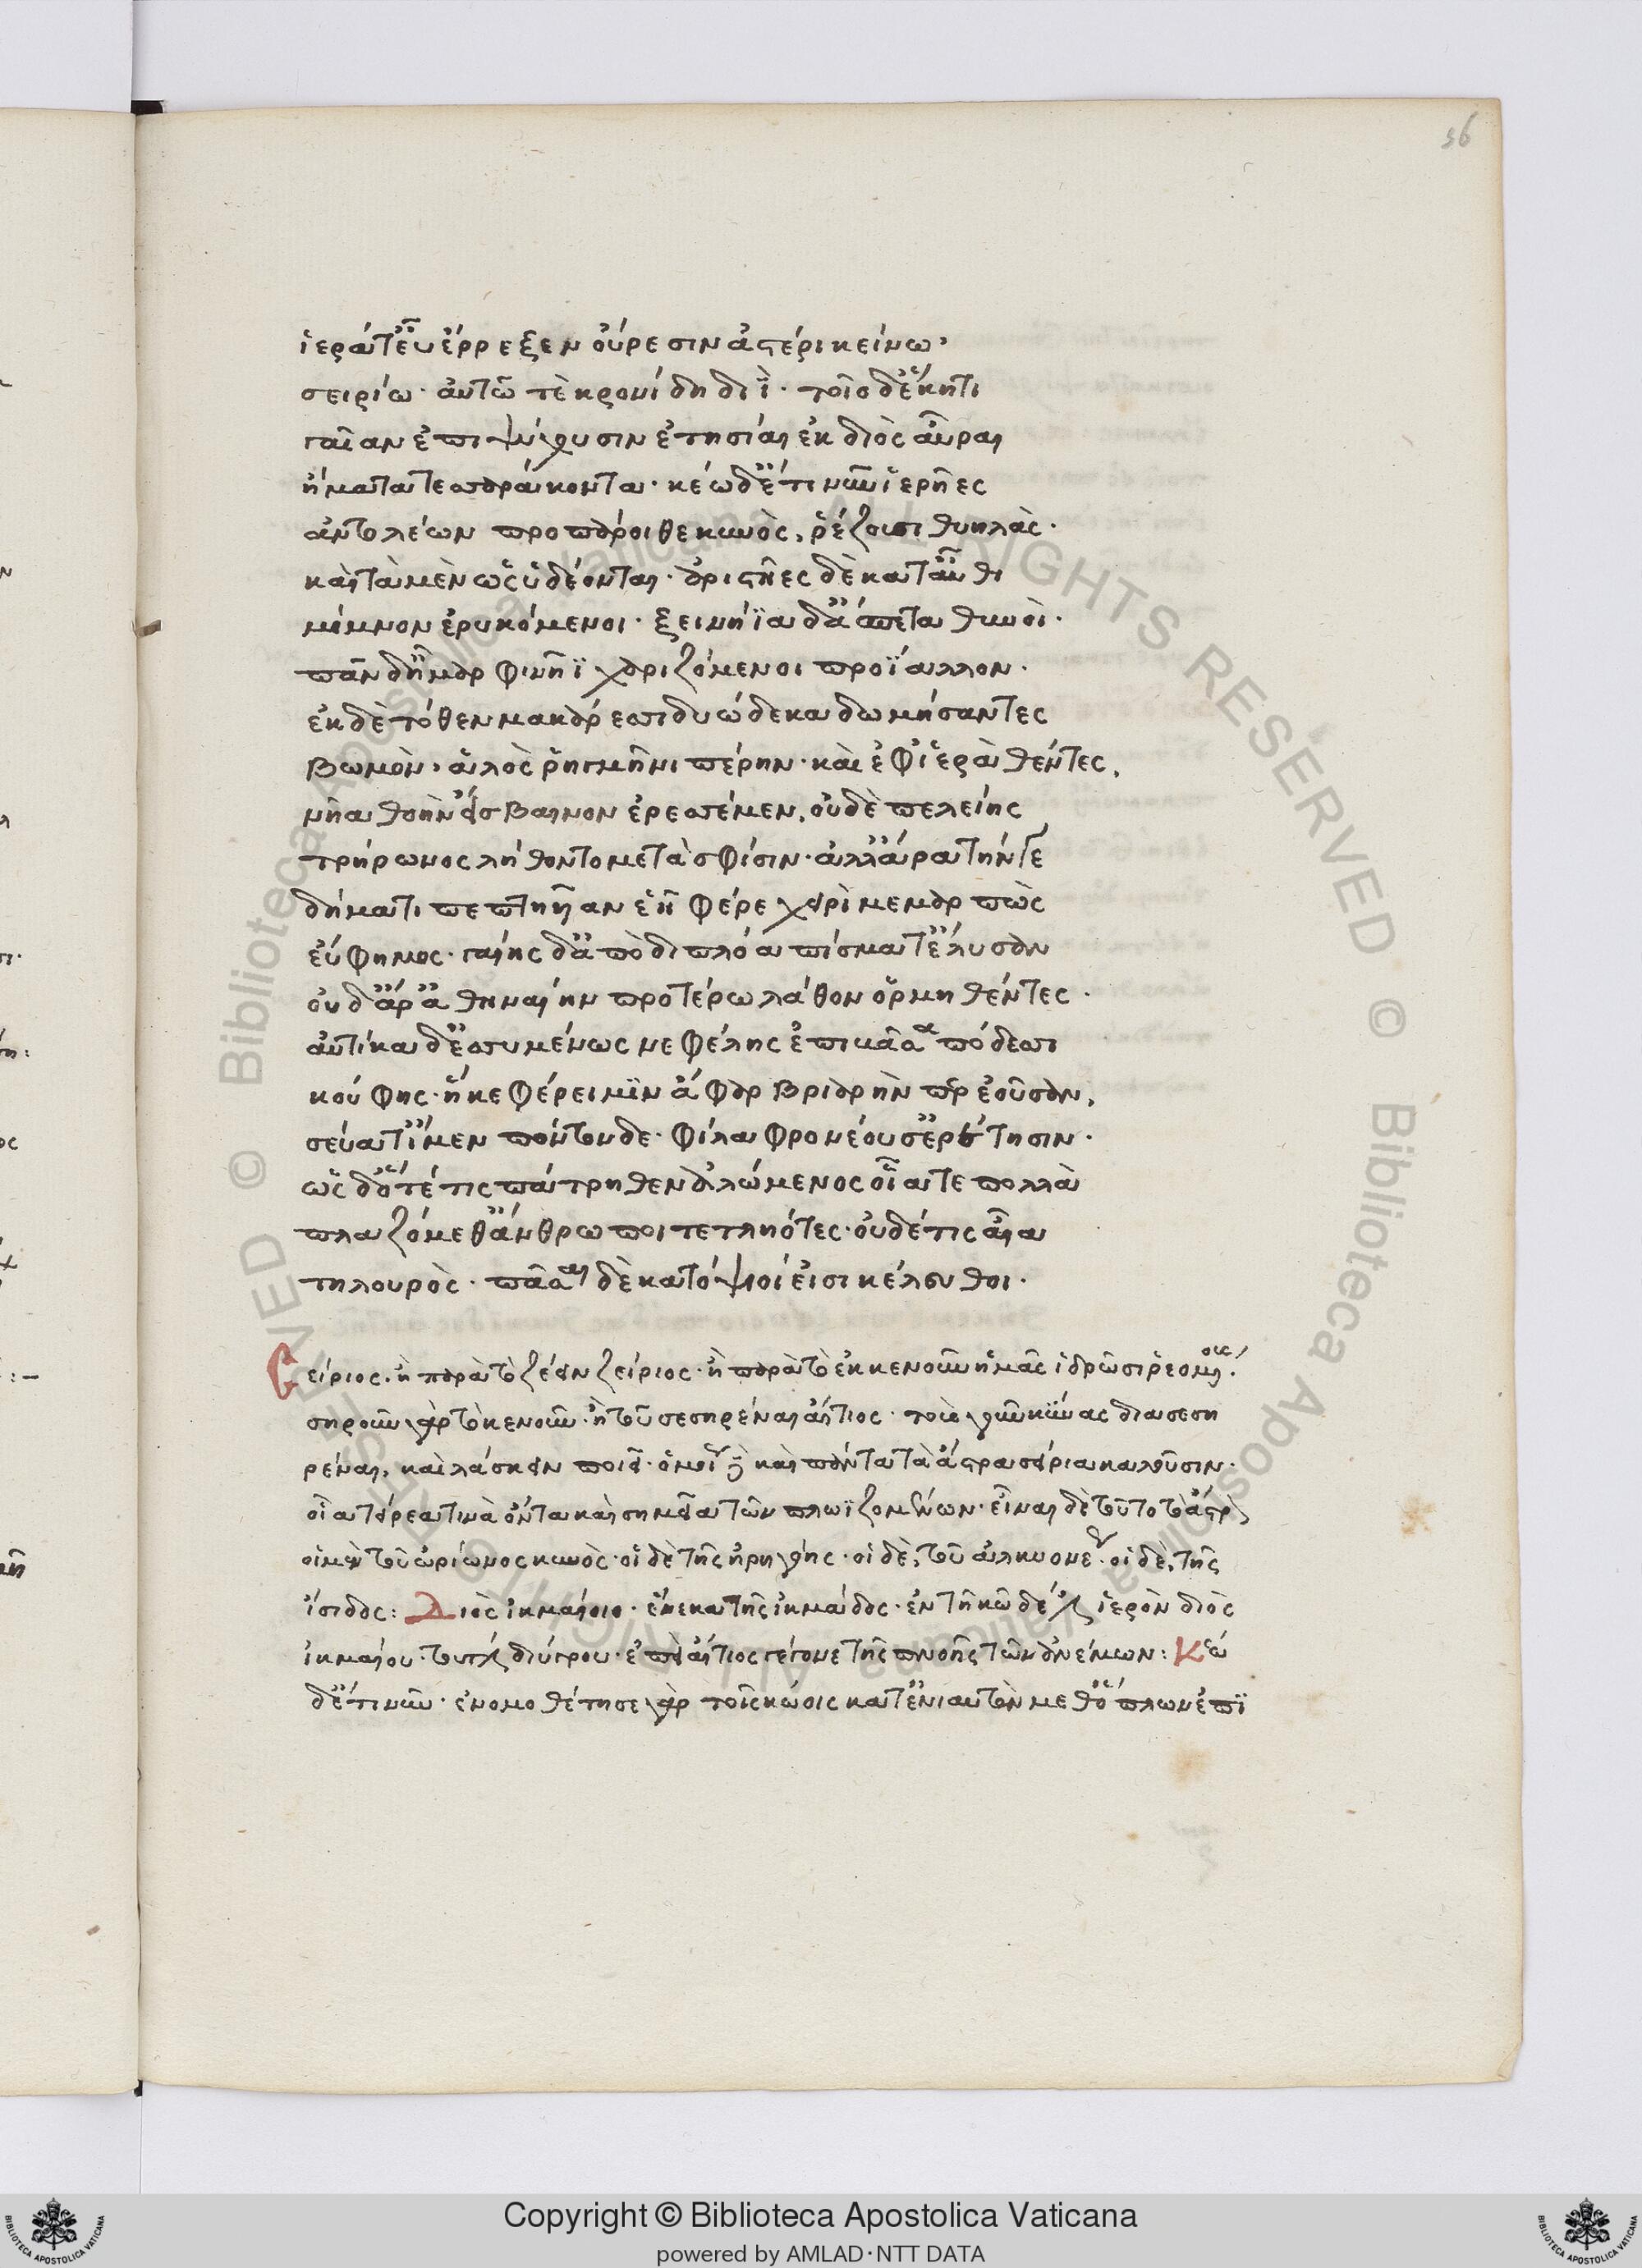 56
ἱερά τ' εὖ ἔρρεξεν οὔρεσιν ἀστέρι κείνω·
σειρίω· αὐτῶ τὲ κρονίδη διΐ· τοῖο δ' ἕκητι
γαῖαν ἐπιψύχουσιν ἐτησίαι ἐκ διὸς αὖραι
ἤματα τεσσαράκοντα· κέω δ' ἔτι νῦν ἱερῆες
ἀντολέων προπάροιθε κυνὸς, ῥέζουσι θυηλὰς·
καὶ τὰ μὲν ὣς ὑδέονται· ἀριστῆες δὲ καταῦθι
μίμνον ἐρυκόμενοι· ξεινήϊα δ' ἄσπετα θυνοὶ·
πᾶν δ' ἦμαρ φινῆϊ χαριζόμενοι προΐαλλον·
ἐκ δὲ τόθεν μακάρεσσι δυώδεκα δωμήσαντες
βωμὸν, ἁλὸς ῥηγμῖνι πέρην· καὶ ἐφ' ἱερὰ θέντες,
νῆα θοὴν εἴσβαινον ἐρεσσέμεν, οὐδὲ πελείης
τρήρωνος λήθοντο μετὰ σφίσιν· ἀλλ' ἄρα τήν γε
δήματι πεπτηῆαν ἑῆ φέρε χειρὶ μεμαρπὼς
εὔφημος· γαίης δ' ἀπὸ διπλόα πίσματ' ἔλυσαν
οὐδ' ἄρ' ἀθηναίην προτέρω λάθον ὁρμηθέντες·
αὐτίκα δ' ἐσσυμένως νεφέλης ἐπιβᾶσα πόδεσσι
κούφης· ἥ κε φέρει μιν ἄφαρ βριαρὴν περ ἐοῦσαν,
σεύατ' ἴμεν πόντονδε· φίλα φρονέουσ' ἐρέτησιν·
ὡς δ' ὅτε τις πάτρηθεν ἀλώμενος οἷά τε πολλὰ
πλαζόμεθ' ἄνθρωποι τετληότες· οὐδέ τις αἶα
τηλουρὸς· πᾶσαι δὲ κατόψιοί εἰσι κέλευθοι·
Σείριος· ἢ παρὰ τὸ ζέειν ζείριος· ἢ παρὰ τὸ ἐκκενοῦν ἡμᾶς ἱδρῶσι ῥεομένους·
σηροῦν γὰρ τὸ κενοῦν· ἢ τοῦ σεσηρέναι αἴτιος· τοὺς γοῦν κύνας διασεση
ρέναι, καὶ λάσκειν ποιεῖ· καὶ πάντα τὰ ἄστρα σείρια καλοῦσιν·
οἷα τείρεα τινὰ ὄντα καὶ σημεῖα τῶν πλωϊζομένων· εἶναι δὲ τοῦτο τὸ ἄστρον
οἱ μὲν τοῦ ὠρίωνος κυνὸς· οἱ δὲ τῆς ἠριγόνης· οἱ δὲ, τοῦ οἱ δὲ, τῆς
ἴσιδος: Διὸς ἰκμαίοιο· ἕνεκα τῆς ἰκμάδος· ἐν τῆ κῶ δέ ἐστιν ἱερὸν διὸς
ἰκμαίου· τουτέστι διύγρου· ἐπεὶ αἴτιος γέγονε τῆς πνοῆς τῶν ἀνέμων: Κέω
δ' ἔτι νῦν· ἐνομοθέτησε γὰρ τοῖς κώοις κατ' ἐνιαυτὸν μεθ' ὅπλων ἐπι
Copyright © Biblioteca Apostolica Vaticana
powered by AMLAD·NTT DATA